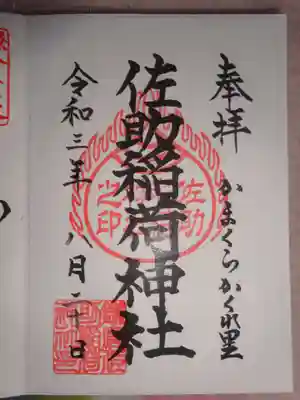 奉拝
かまくらかくれ里
佐助稲荷神社
佐助
之印
令和三年八月二十日